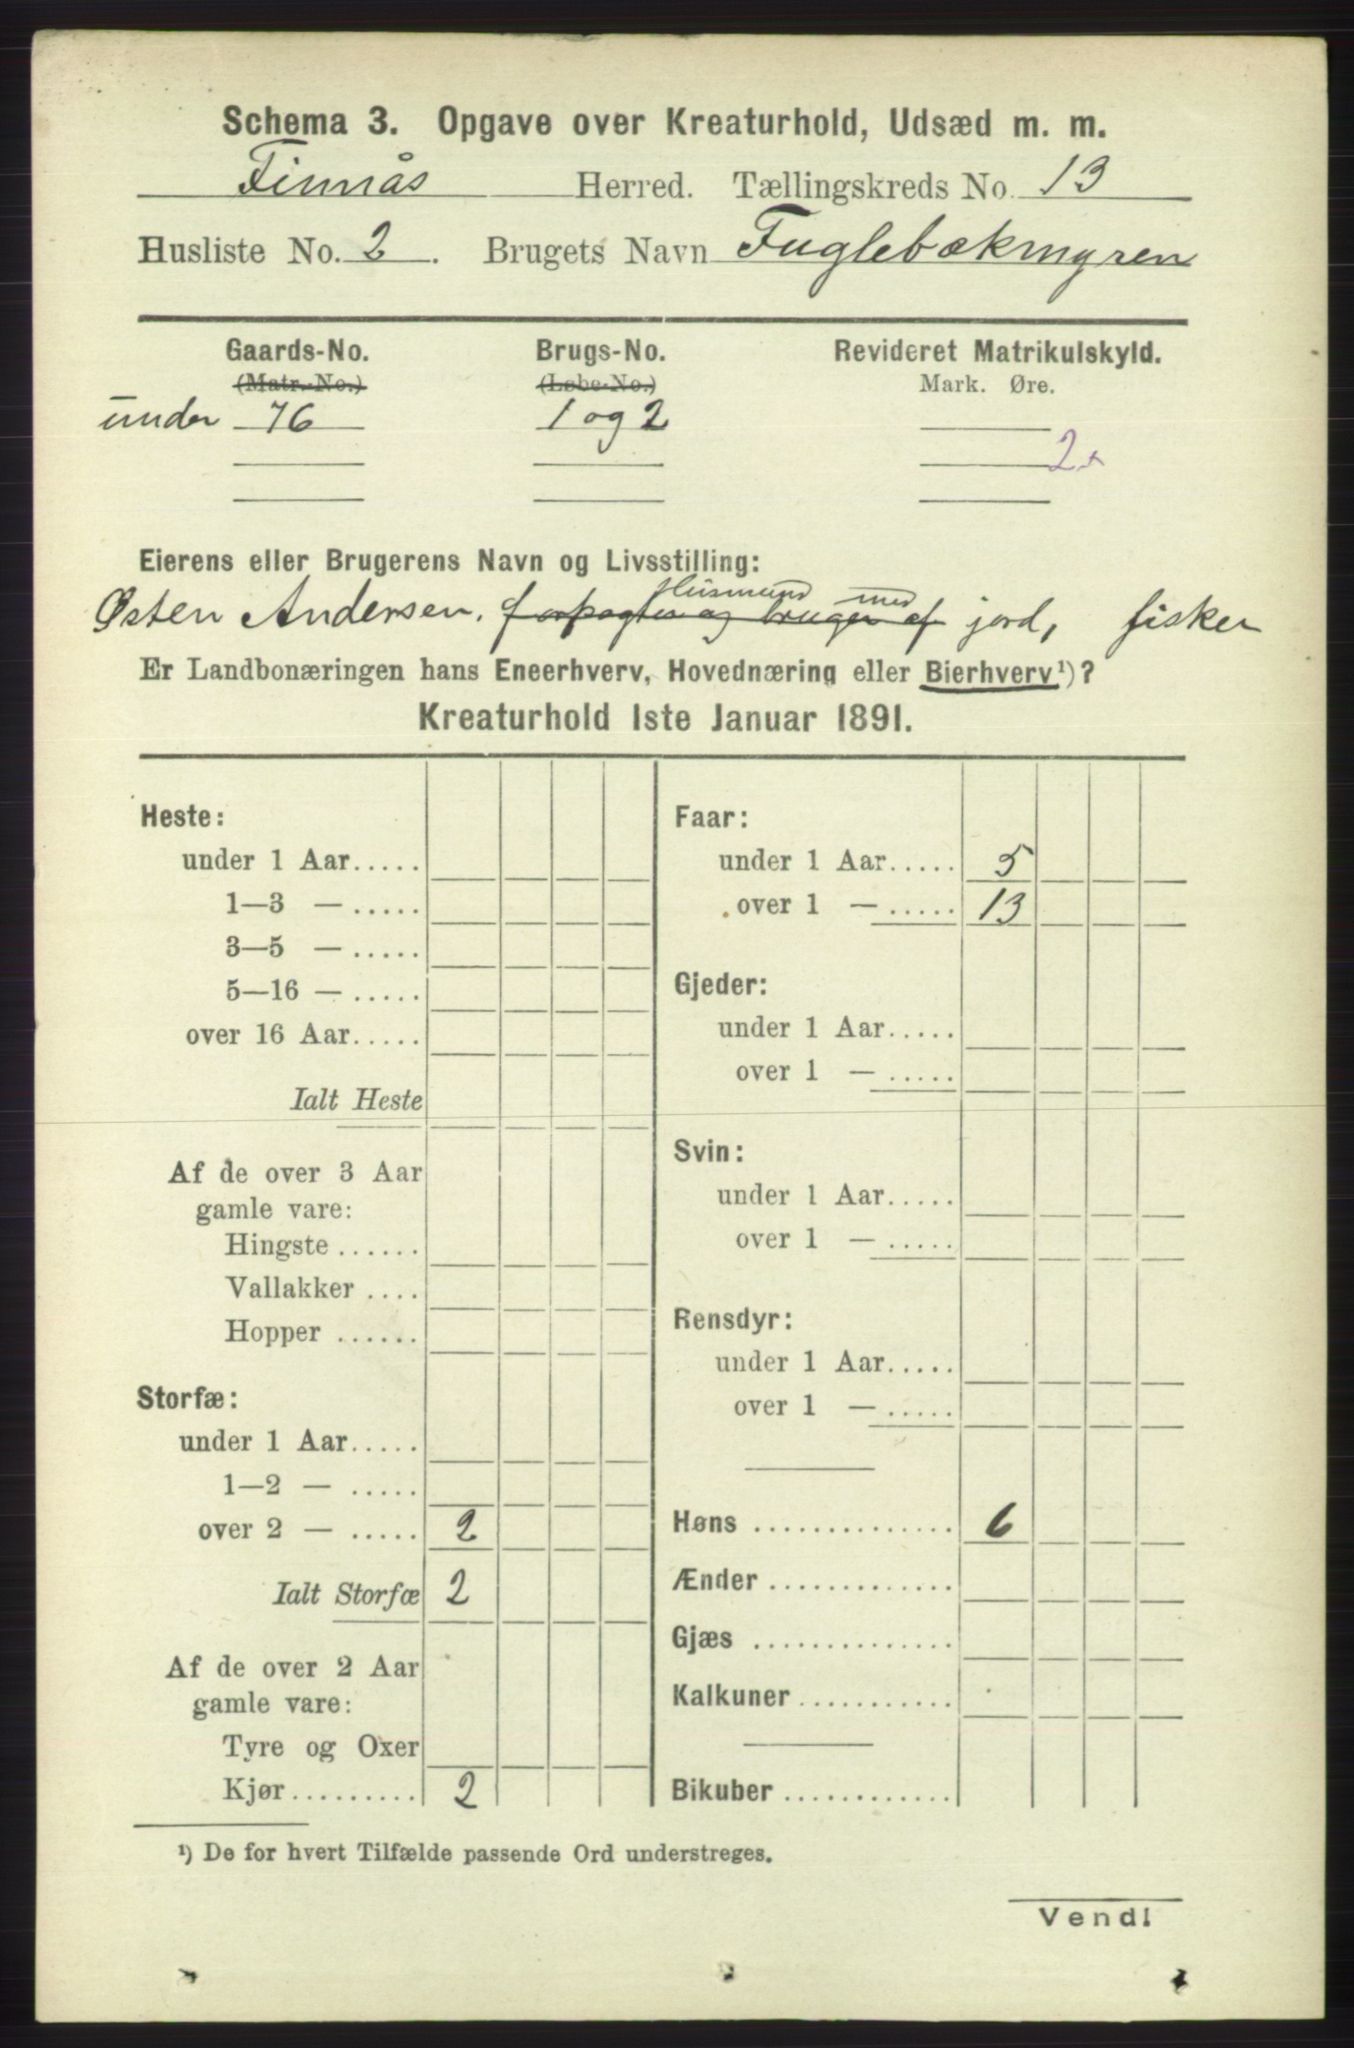 Schema 3. Opgave over Kreaturhold, Udsæd m. m.
Finnås Herred. Tællingskreds No. 13
Husliste No. 2. Brugets Navn Fuglebækmyren
Gaards-No. Brugs-No. Revideret Matrikulskyld.
(Matr.-No.) (Løbe-No.) Mark. Øre.
under 76 1 og 2
2
Eierens eller Brugerens Navn og Livsstilling:
Husmand med
Østen Andersen. forpagter og bruger af jord, fisker
Er Landbonæringen hans Eneerhverv, Hovednæring eller Bierhverv¹)?
Kreaturhold 1ste Januar 1891.
Heste:
under 1 Aar.....
1—3 — .....
3—5 — .....
5—16 — .....
over 16 Aar.....
Ialt Heste
Af de over 3 Aar
gamle vare:
Hingste ......
Vallakker ....
Hopper ......
Storfæ:
under 1 Aar.....
1—2 — .....
over 2 — ..... 2
Ialt Storfæ 2
Af de over 2 Aar
gamle vare:
Tyre og Oxer
Kjør......... 2
Faar:
under 1 Aar..... 5
over 1 — ..... 13
Gjeder:
under 1 Aar.....
over 1 — .....
Svin:
under 1 Aar.....
over 1 — .....
Rensdyr:
under 1 Aar.....
over 1 — .....
Høns .............. 6
Ænder .............
Gjæs ..............
Kalkuner ...........
Bikuber ............
¹) De for hvert Tilfælde passende Ord understreges.
Vend!